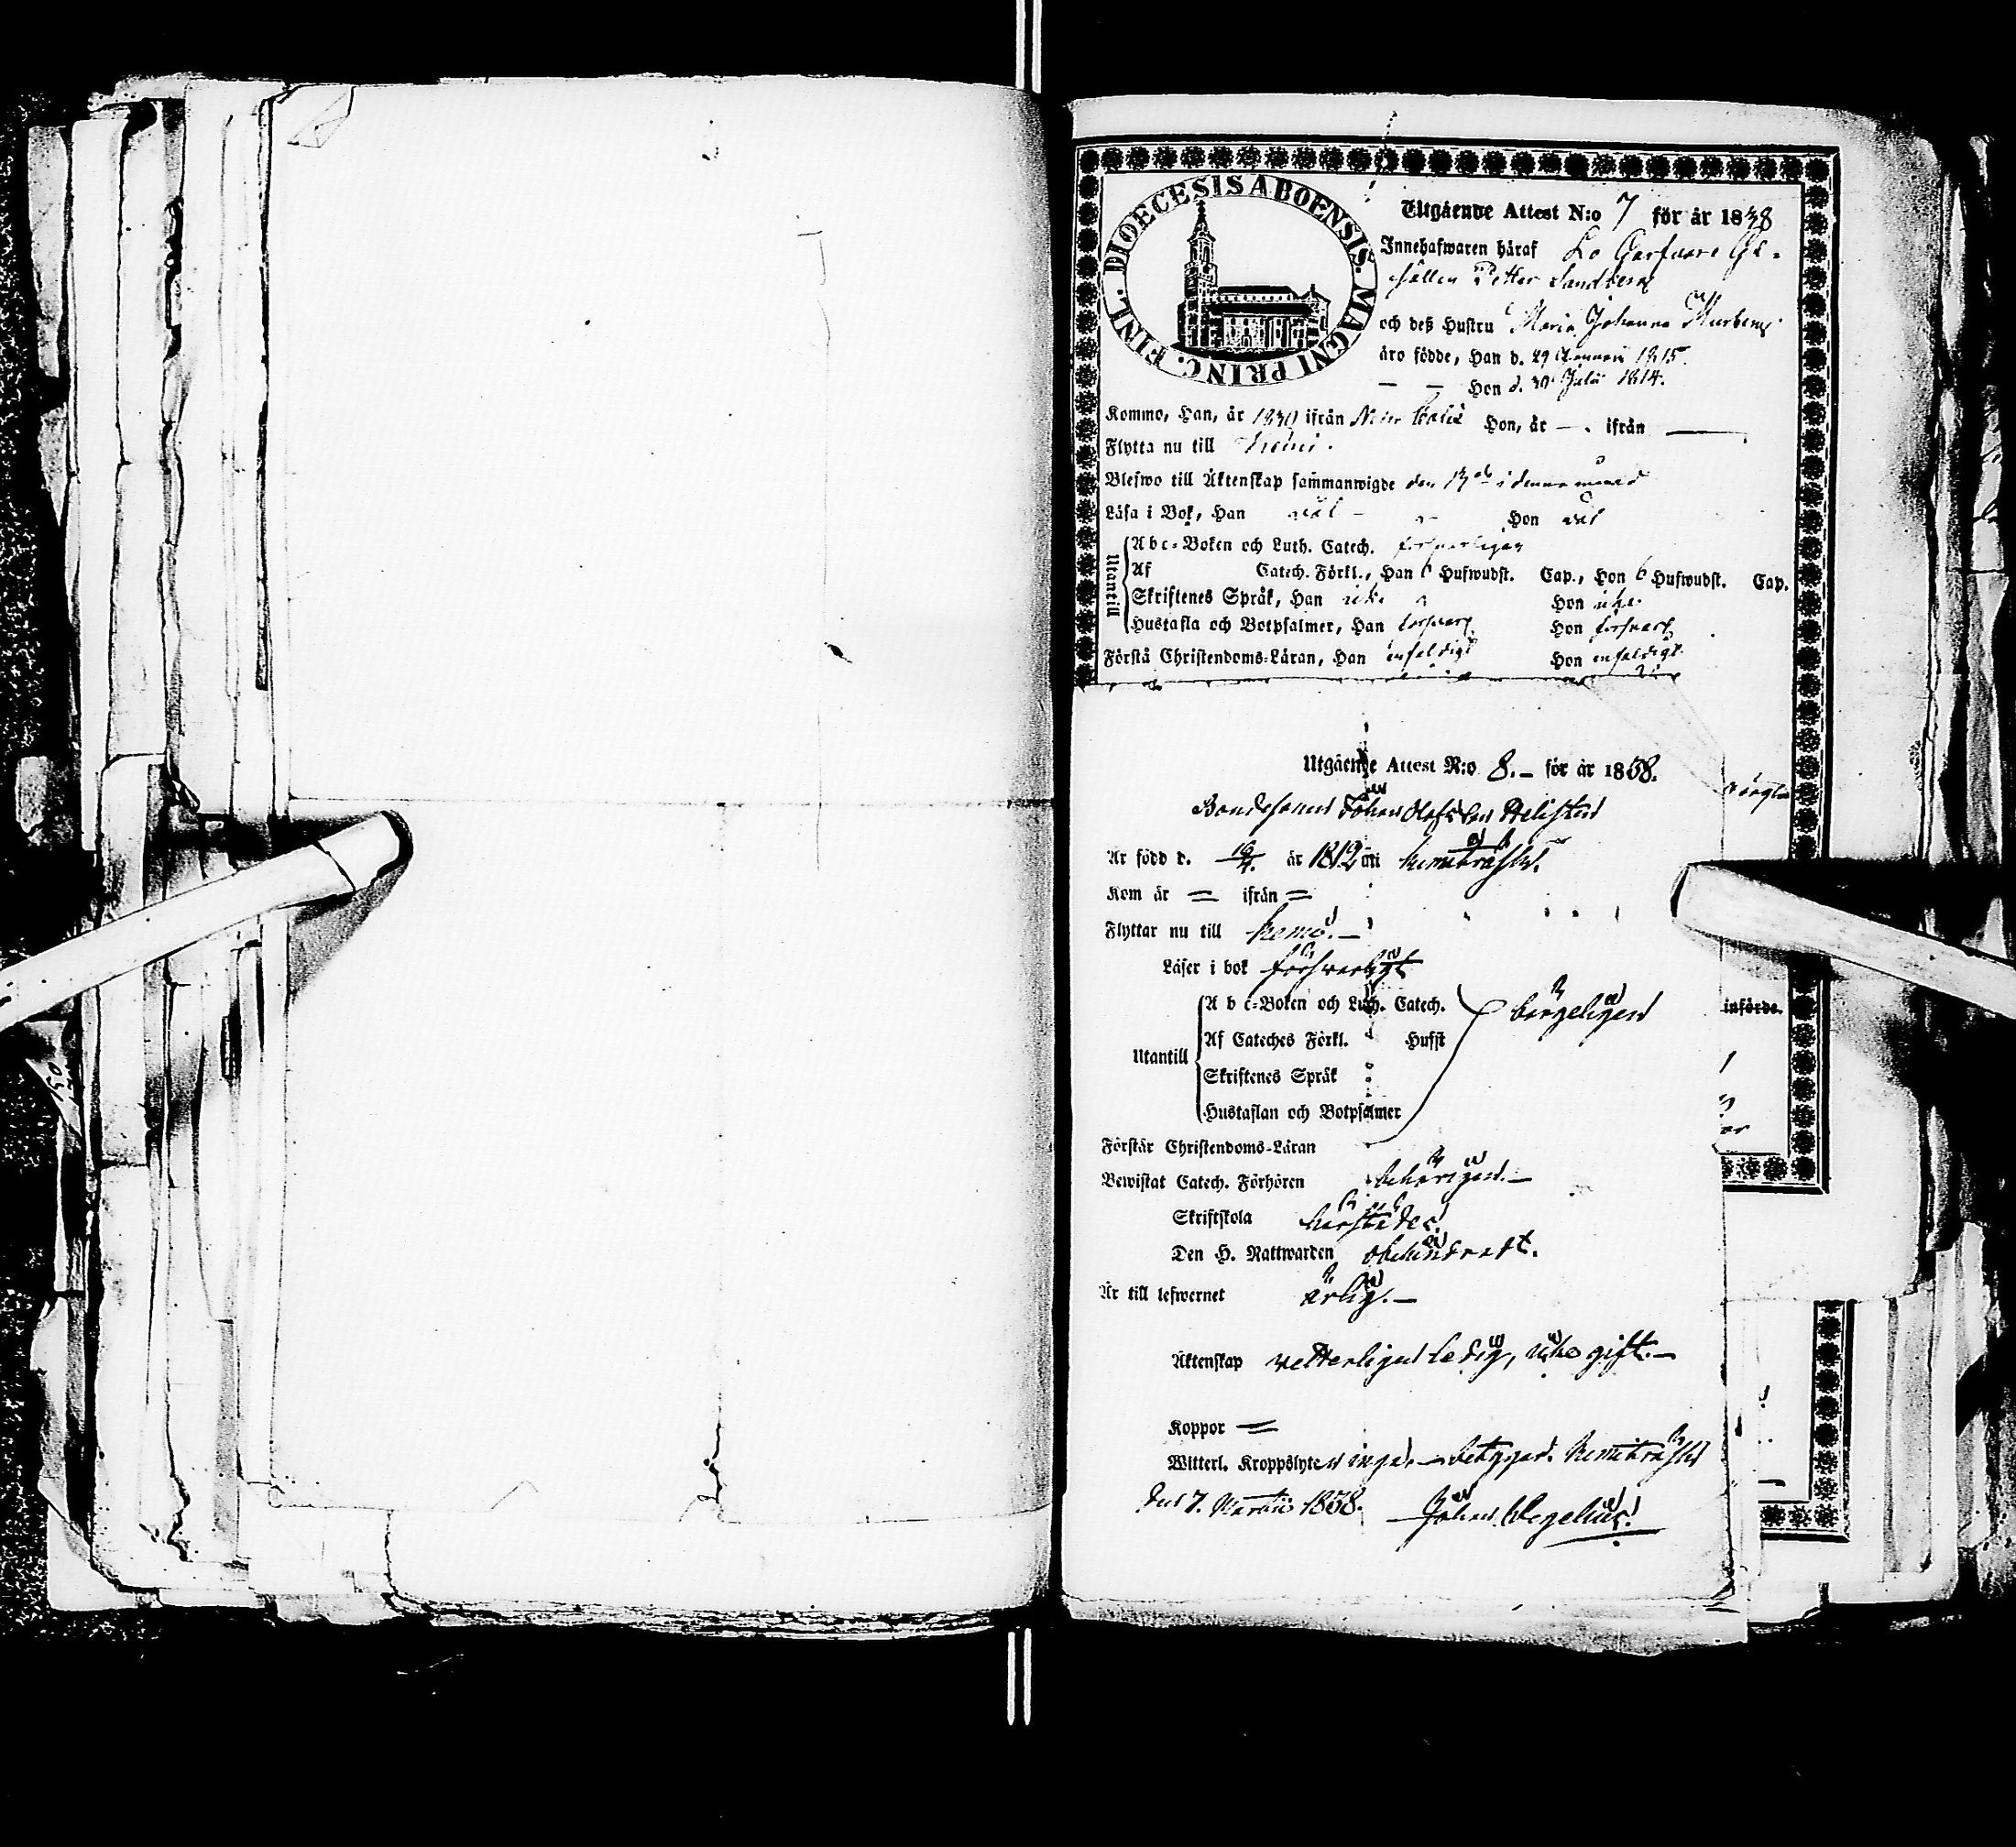 DIOECESIS ABOENSIS. MAGNI PRINC. FINL.
Utgående Attest N:o 7 för år 1838
Innehafwaren häraf Lo Garfware Ge-
sällen Petter Sandberg
och deß Hustru Maria Johanna Murberg
äro födde, Han d. 29 Januari 1815.
— — Hon d. 30 Julii 1814.
Kommo, Han, år 1830 ifrån Neder Hon, år — . ifrån —
Flytta nu till Kemi.
Blefwo till Äktenskap sammanwigde den 13de i denna månad
Läsa i Bok, Han väl — Hon väl
Utantill
Abc-Boken och Luth. Catech. försvarligen
Af Catech. Förkl., Han 6 Hufwudst. Cap., Hon 6 Hufwudst. Cap.
Skriftenes Språk, Han icke Hon icke
Hustafla och Botpsalmer, Han försvarl. Hon försvarl.
Förstå Christendoms-Läran, Han enfaldigt Hon enfaldigt
Utgående Attest N:o 8. — för år 1858.
Bondesonen Johan Olofsson
Är född d. 16/4. år 1812 i Kemiträsk.
Kom år = ifrån =
Flyttar nu till Kemi. —
Läser i bok försvarligt
A b c-Boken och Luth. Catech. börgeligen
införde.
Af Cateches Förkl. Hufst
Utantill
Skriftenes Språk
Hustaflan och Botpsalmer
Förstår Christendoms-Läran
Bewistat Catech. Förhören behörigen. —
Skriftskola härstädes.
Den H. Nattwarden obehindradt.
Är till lefwernet ärlig. —
Äktenskap vetterligen ledig, icke gift. —
Koppor =
Witterl. Kroppslyten inga, — betygar. Kemiträsk
den 7. Martii 1858. Johan Wegelius.